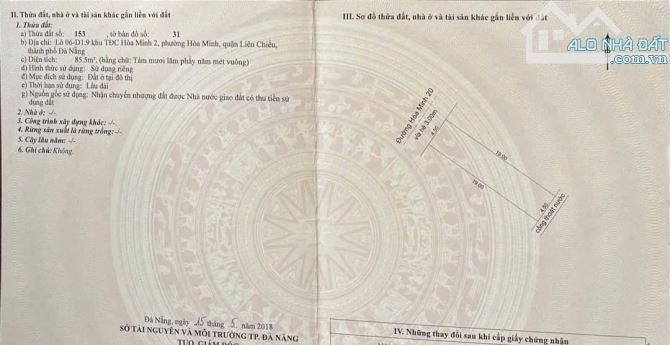 II. Thửa đất, nhà ở và tài sản khác gắn liền với đất
1. Thửa đất:
a) Thửa đất số: 153 , tờ bản đồ số: 31
b) Địa chỉ: Lô 06-D1.9 khu TĐC Hòa Minh 2, phường Hòa Minh, quận Liên Chiểu,
thành phố Đà Nẵng
c) Diện tích: 85.5m², (bằng chữ: Tám mươi lăm phẩy năm mét vuông)
d) Hình thức sử dụng: Sử dụng riêng
đ) Mục đích sử dụng: Đất ở tại đô thị
e) Thời hạn sử dụng: Lâu dài
g) Nguồn gốc sử dụng: Nhận chuyển nhượng đất được Nhà nước giao đất có thu tiền sử
dụng đất
2. Nhà ở: -/-
3. Công trình xây dựng khác: -/-
4. Rừng sản xuất là rừng trồng: -/-
5. Cây lâu năm: -/-
6. Ghi chú: Không.
Đà Nẵng, ngày 15 tháng 5 năm 2018
SỞ TÀI NGUYÊN VÀ MÔI TRƯỜNG TP. ĐÀ NẴNG
TUQ. GIÁM ĐỐC
III. Sơ đồ thửa đất, nhà ở và tài sản khác gắn liền với đất
ALO NHÀ ĐẤT
Đường Hòa Minh 20
vỉa hè 3.00m
4.50
19.00
19.00
4.50
cống thoát nước
IV. Những thay đổi sau khi cấp giấy chứng nhận